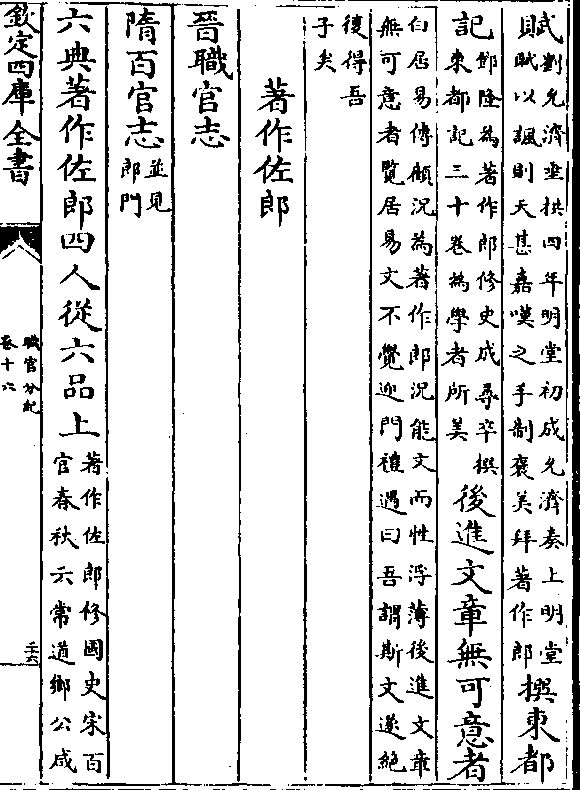 賦劉允濟垂拱四年明堂初成允濟奏上明堂
賦以諷則天甚嘉嘆之手制褒美拜著作郎撰東都
記鄧隆為著作郎修史成尋卒撰
東都記三十卷為學者所美後進文章無可意者
白居易傳顧況為著作郎況能文而性浮薄後進文章
無可意者覽居易文不覺迎門禮遇曰吾謂斯文遂絶
復得吾
子矣
著作佐郎
晉職官志
隋百官志並見
郎門
六典著作佐郎四人從六品上著作佐郎修國史宋百
官春秋云常道鄉公咸
欽定四庫全書
職官分紀
卷十六